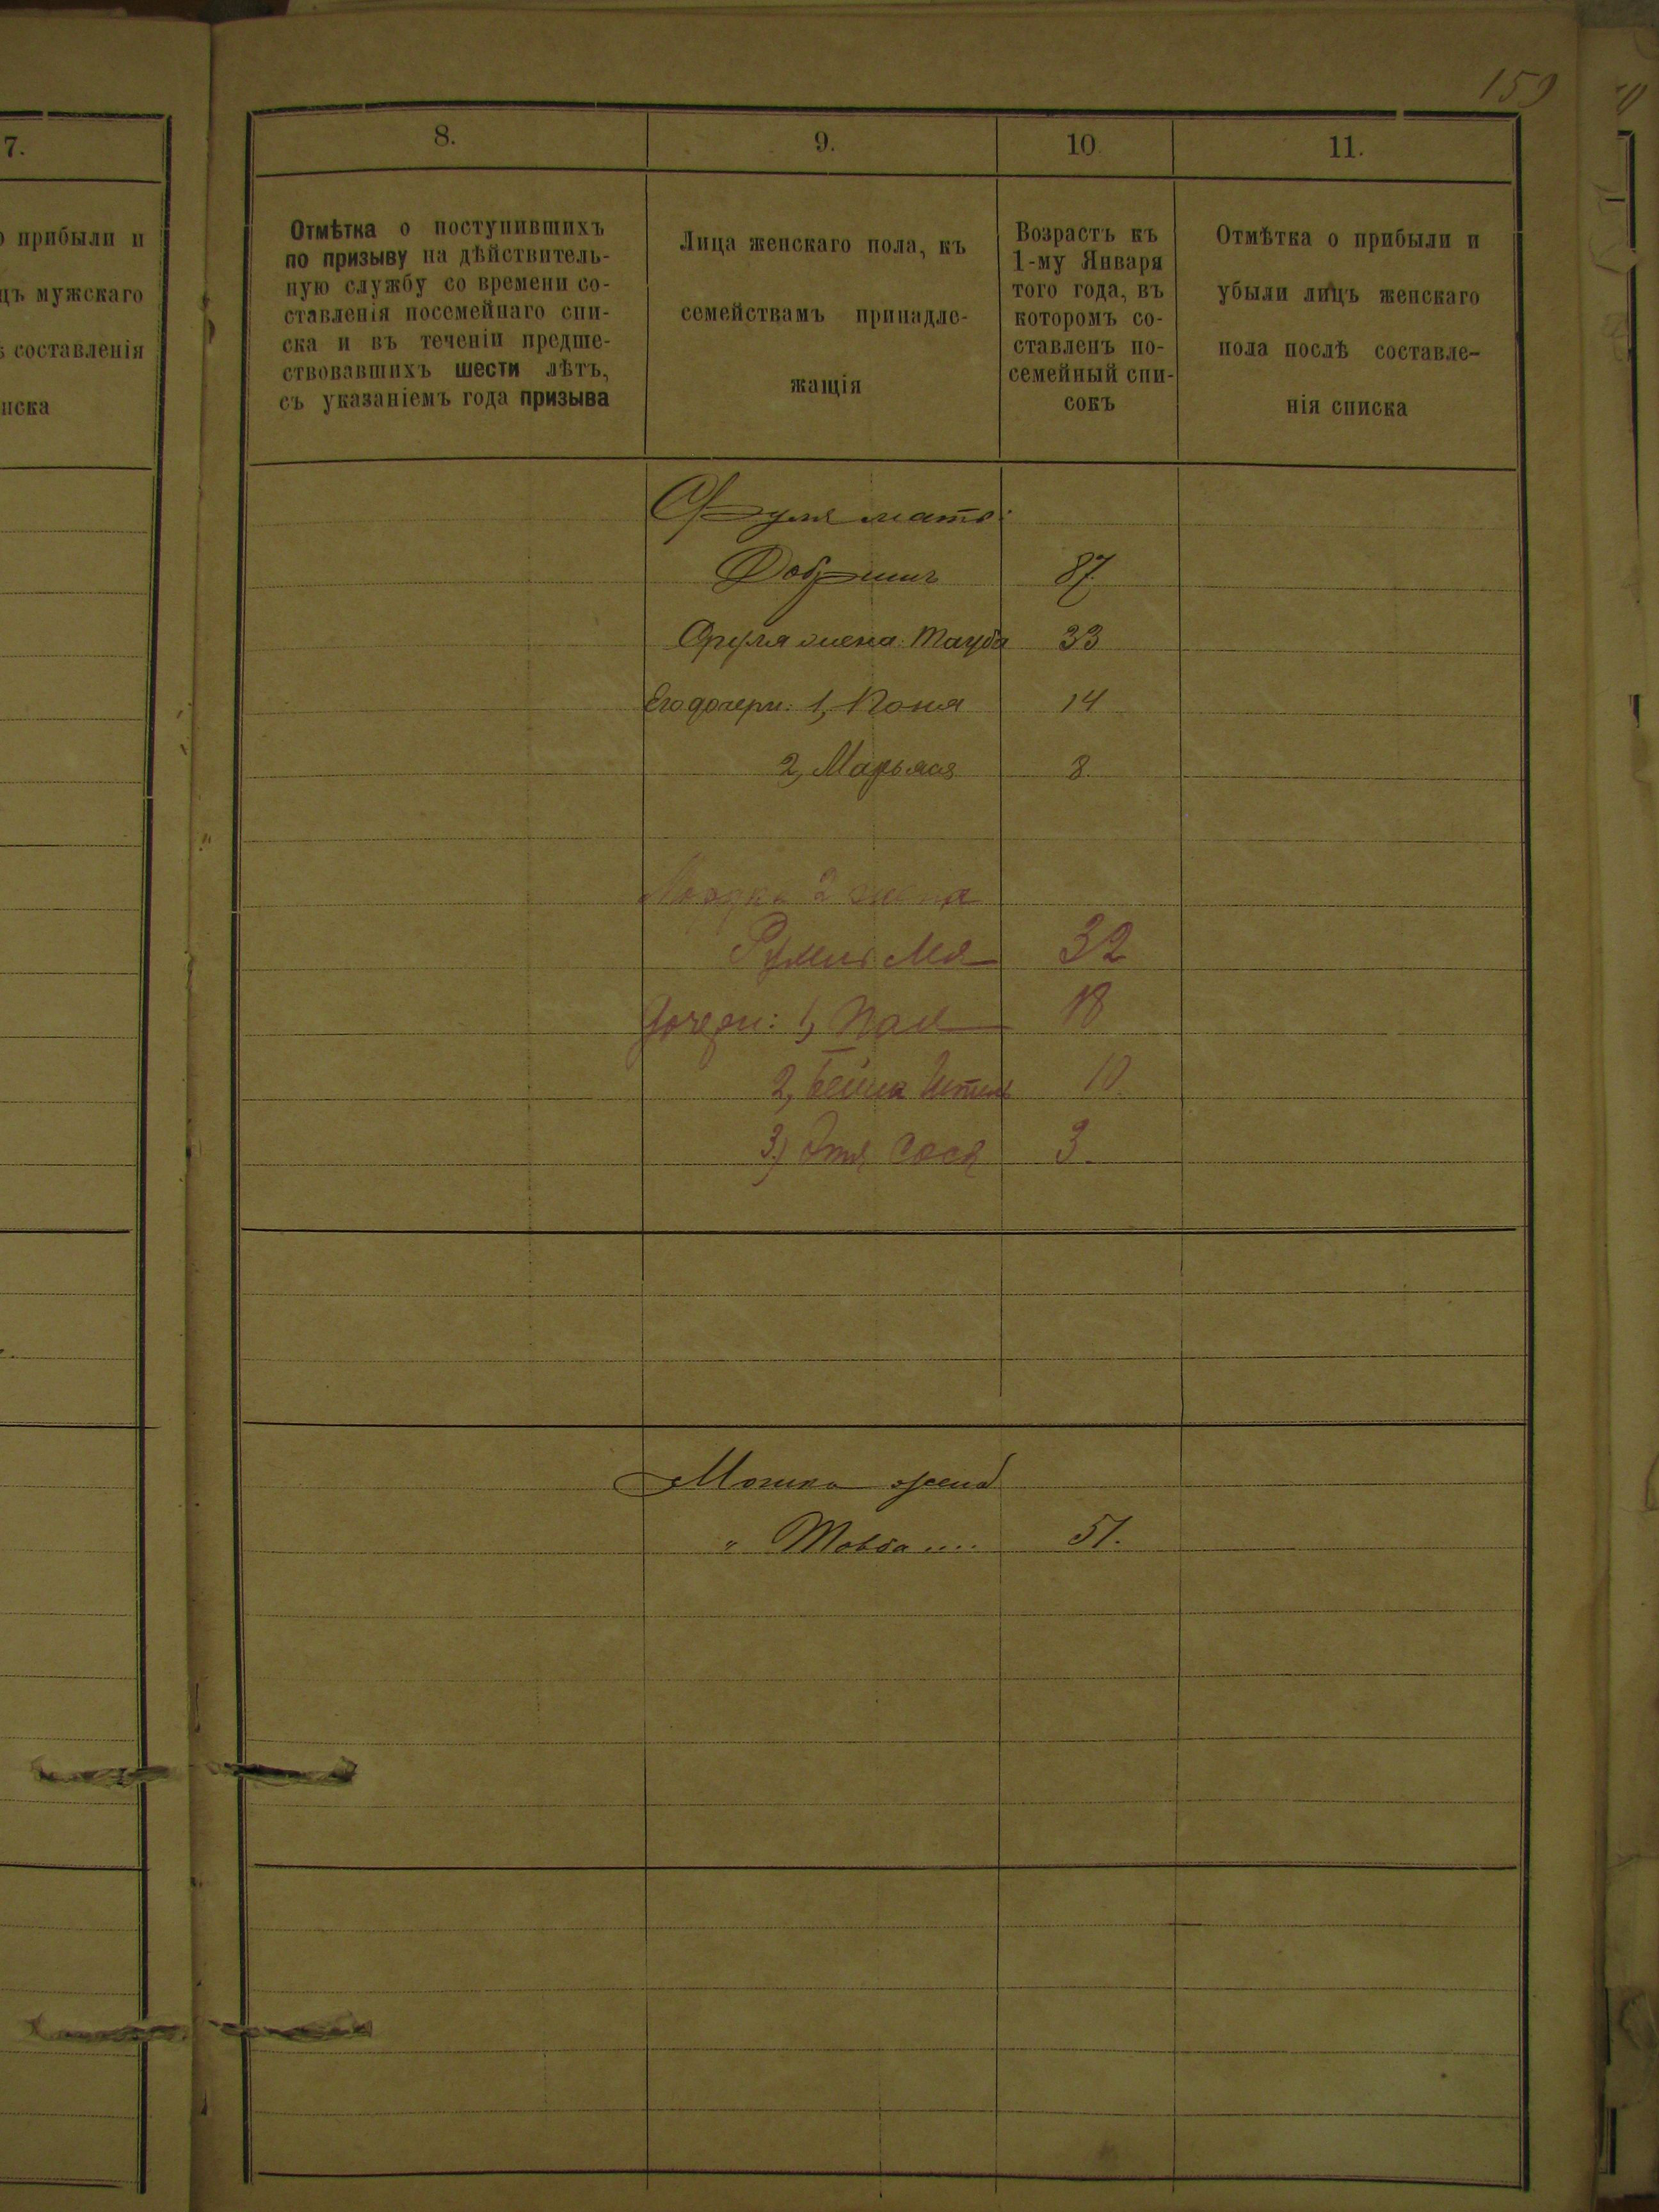 159
7.
прибыли и
цъ мужскаго
составленія
иска
8.
9.
10.
11.
Отмѣтка о поступившихъ
по призыву на дѣйствитель-
ную службу со времени со-
ставленія посемейнаго спи-
ска и въ теченіи предше-
ствовавшихъ шести лѣтъ,
съ указаніемъ года призыва
Лица женскаго пола, къ
семействамъ принадле-
жащія
Возрастъ къ
1-му Января
того года, въ
которомъ со-
ставленъ по-
семейный спи-
сокъ
Отмѣтка о прибыли и
убыли лицъ женскаго
пола послѣ составле-
нія списка
Сруля мать:
87.
Сруля жена: Тауба 33
Его дочери: 1, 14
2, Марьяся 8.
2 жена
32
Дочери: 1, 18
2, Бейла 10.
3.) Этя Сося 3.
Мошка жена
" Товба .... 51.